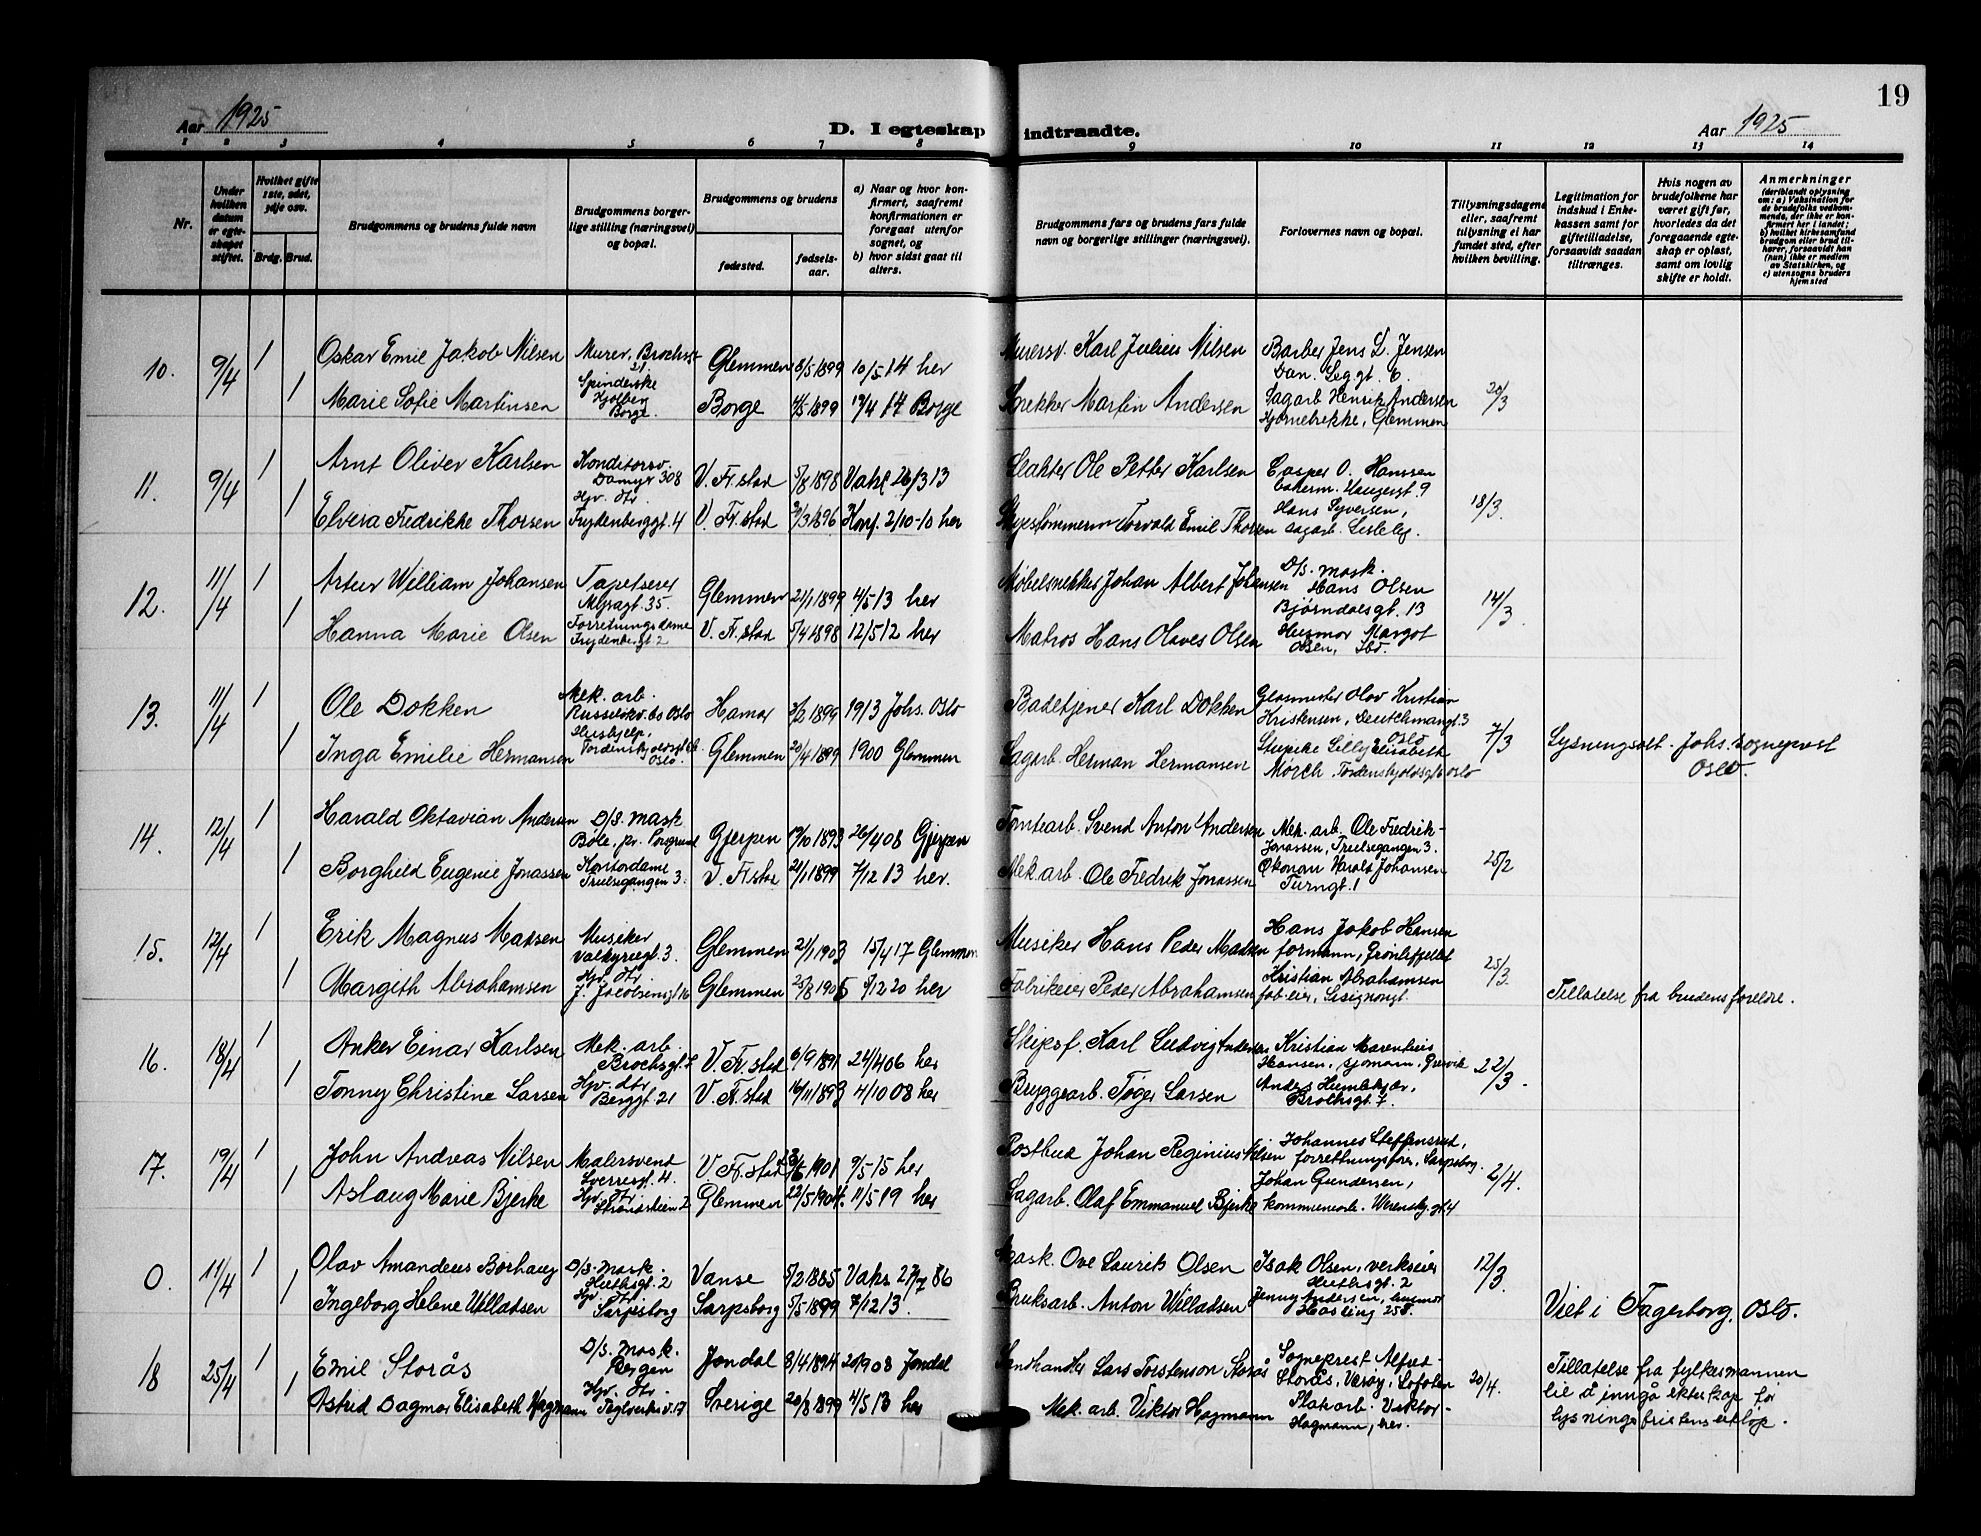 19
Aar 1925
D. I egteskap indtraadte.
Aar 1925
1 2 3 4 5 6 7 8 9 10 11 12 13 14
Nr.
Under hvilken datum er egteskapet stiftet.
Hvilket gifte 1ste, 2det, 3dje osv.
Brdg. Brud.
Brudgommens og brudens fulde navn
Brudgommens borgerlige stilling (næringsvei) og bopæl.
Brudgommens og brudens
fødested.
fødselsaar.
a) Naar og hvor konfirmert, saafremt konfirmationen er foregaat utenfor sognet, og
b) hvor sidst gaat til alters.
Brudgommens fars og brudens fars fulde navn og borgerlige stillinger (næringsvei).
Forlovernes navn og bopæl.
Tillysningsdagene eller, saafremt tillysning ei har fundet sted, efter hvilken bevilling.
Legitimation for indskud i Enkekassen samt for giftetilladelse, forsaavidt saadan tiltrænges.
Hvis nogen av brudefolkene har været gift før, hvorledes da det foregaaende egteskap er opløst, samt om lovlig skifte er holdt.
Anmerkninger
(deriblandt oplysning om: a) Vaksination for de brudefolks vedkommende, der ikke er konfirmert her i landet; b) hvilket kirkesamfund brudgom eller brud tilhører, forsaavidt han (hun) ikke er medlem av Statskirken, og c) utensogns bruders hjemsted
10. 9/4 1 Oskar Emil Jakob Nilsen Murer, Glemmen 8/5 1899 10/5 14 her Murersv. Karl Julius Nilsen Barber Jens L. Jensen
Dan. Leg.gt. 6.
1 Marie Sofie Martinsen Spinderske Kjølben Borge. Borge 4/5 1899 19/4 14 Borge Snekker Martin Andersen Sagarb Henrik Andersen 20/3
Hjørnebekke, Glemmen
11. 9/4 1 Arnt Oliver Karlsen Konditorsv. Damyr 308 V. Fr.stad 5/8 1898 Vaks 26/3 13 Slakter Ole Petter Karlsen Casper O. Hanssen
1 Elvera Fredrikke Thorsen Hjv. dtr. Frydenberggt. 4 V. Fr.stad 1896 Konf. 2/10-10 her Torvald Emil Thorsen Hans Syversen, 18/3.
sagarb. Lisleby.
12. 11/4 1 Artur William Johansen Tapetserer Myragt. 35. Glemmen 21/1 1899 4/5 13 her Møbelsnekker Johan Albert Johansen D/s. mask. Hans Olsen
Bjørndalsgt. 13
1 Hanna Marie Olsen Forretningsdame Frydenb.gt 2 V. Fr.stad 5/4 1898 12/5 12 her Matros Hans Olaves Olsen Husmor Margot Olsen, Ibd. 14/3.
13. 11/4 1 Ole Dokken Mek. arb. Russeløkv. 60 Oslo Hamar 3/2 1899 1913 Johs. Oslo Badetjener Karl Dokken Glasmester Olav Kristian
Kristensen, Deichmangt. 3 Oslo
1 Inga Emilie Hermansen Hushjelp, Tordenskjoldsgt Oslo Glemmen 20/4 1899 1900 Glemmen Sagarb. Herman Hermansen Lilly Elisabeth 7/3 Lysningsatt. Johs. sogneprest
Mørch, Tordenskjoldsgt 6 Oslo Oslo.
14. 12/4 1 Harald Oktavian Andersen D/S. mask Bøle, pr. Porsgrund Gjerpen 19/10 1893 26/4 08 Gjerpen Tomtarb. Svend Anton Andersen Mek. arb. Ole Fredrik-
Jonassen, Trielsegangen 3.
1 Borghild Eugenie Jonassen Kontordame Trielsegangen 3. V. Fr.stad 21/1 1899 7/12 13 her. Mek. arb. Ole Fredrik Jonassen Økonom Harald Johansen 25/2
Turngt. 1
15. 12/4 1 Erik Magnus Madsen Musiker Valkyriegt. 3. Glemmen 21/1 1903 15/4 17 Glemmen Musiker Hans Peder Madsen Hans Jakob Hansen
formann, Grønlifjellet
1 Margith Abrahamsen Hjv. dtr. J. Jacobsensgt 16 Glemmen 25/8 1905 5/12 20 her Fabrikeier Peder Abrahamsen Kristian Abrahamsen 25/3.
fab-eier, Tillatelse fra brudens foreldre.
16. 18/4 1 Anker Einar Karlsen Mek. arb. Brochsgt 7 V. Fr. stad 6/9 1891 22/4 06 her Skipsf. Karl Ludvig Andersen Kristian Marenius
Hansen, sjømann, Gressvik
1 Tonny Christine Larsen Hjv. dtr Berggt. 21 V. Fr.stad 16/11 1893 4/10 08 her Bryggearb. Tøger Larsen Anders Humlekjær, 22/3.
Brochsgt. 7.
17. 19/4 1 John Andreas Nilsen Malersvend Sverresgt. 4. V. Fr.stad 1901 9/5 15 her Postbud Johan Reginius Nilsen Johannes Steffensrud,
forretningsfører, Sarpsborg.
1 Aslaug Marie Bjerke Hjv. dtr. Glemmen 22/5 1904. 11/5 19 her Sagarb. Olaf Emmanuel Bjerke Johan Gundersen, 2/4.
kommunearb. Werenskj. gt. 4
0. 11/4 1 Olav Amandeus Borhaug D/s. Mask. Huthsgt. 2 Vanse 5/2 1885 Vaks. 27/7 86 Mask. Ove Laurits Olsen Isak Olsen, verkseier 12/3
Huthsgt. 2
1 Ingeborg Helene Willadsen Hjv. dtr. Sarpsborg Sarpsborg 5/5 1899 7/12 13. Bruksarb. Anton Willadsen Jenny Andersen, husmor Viet i Fagerborg, Oslo.
Hasling 258.
18 25/4 1 Emil Storås D/s. mask. Bergen Jondal 8/4 1894 20/9 08 Jondal Landhandler Lars Torstenson Storås Sogneprest Alfred- Tillatelse fra fylkesmannen
Storås, Værøy, Lofoten til å inngå ekteskap før
1 Astrid Dagmar Elisabeth Hagmann Hjv. dtr. Teglverksv. 17 Sverige 20/8 1899 4/5 13 her Mek. arb. Viktor Hagmann Platearb. Viktor- 20/4. lysningsfristens utløp.
Hagmann, her.